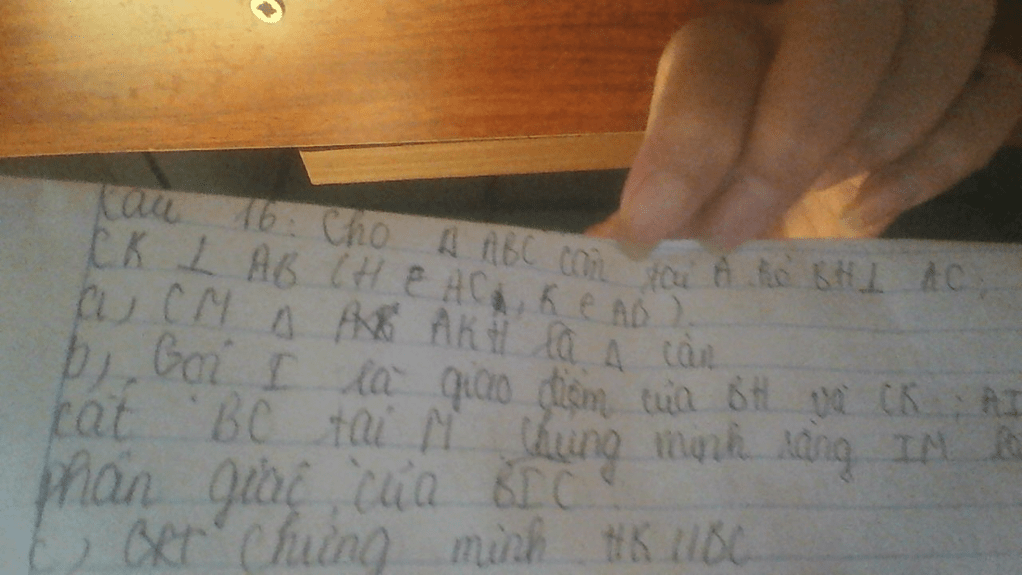 Câu 16: Cho Δ ABC cân tại A kẻ BH ⊥ AC;
CK ⊥ AB (H ∈ AC, K ∈ AB)
a, CM Δ AKH là Δ cân
b, Gọi I là giao điểm của BH và CK; AI
cắt BC tại M chứng minh rằng IM là
phân giác của BIC
c) chứng minh HK // BC